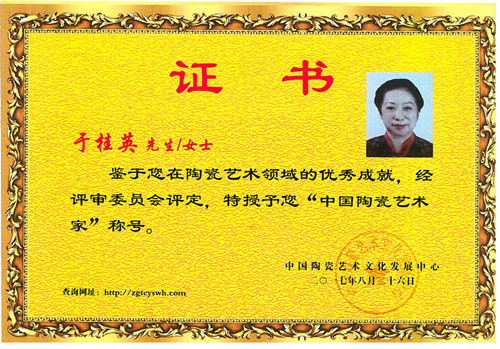 证 书
于桂英 先生/女士
鉴于您在陶瓷艺术领域的优秀成就，经
评审委员会评定，特授予您“中国陶瓷艺术
家”称号。
中国陶瓷艺术文化发展中心
二〇一七年八月二十六日
查询网址：http://zgtcyswh.com